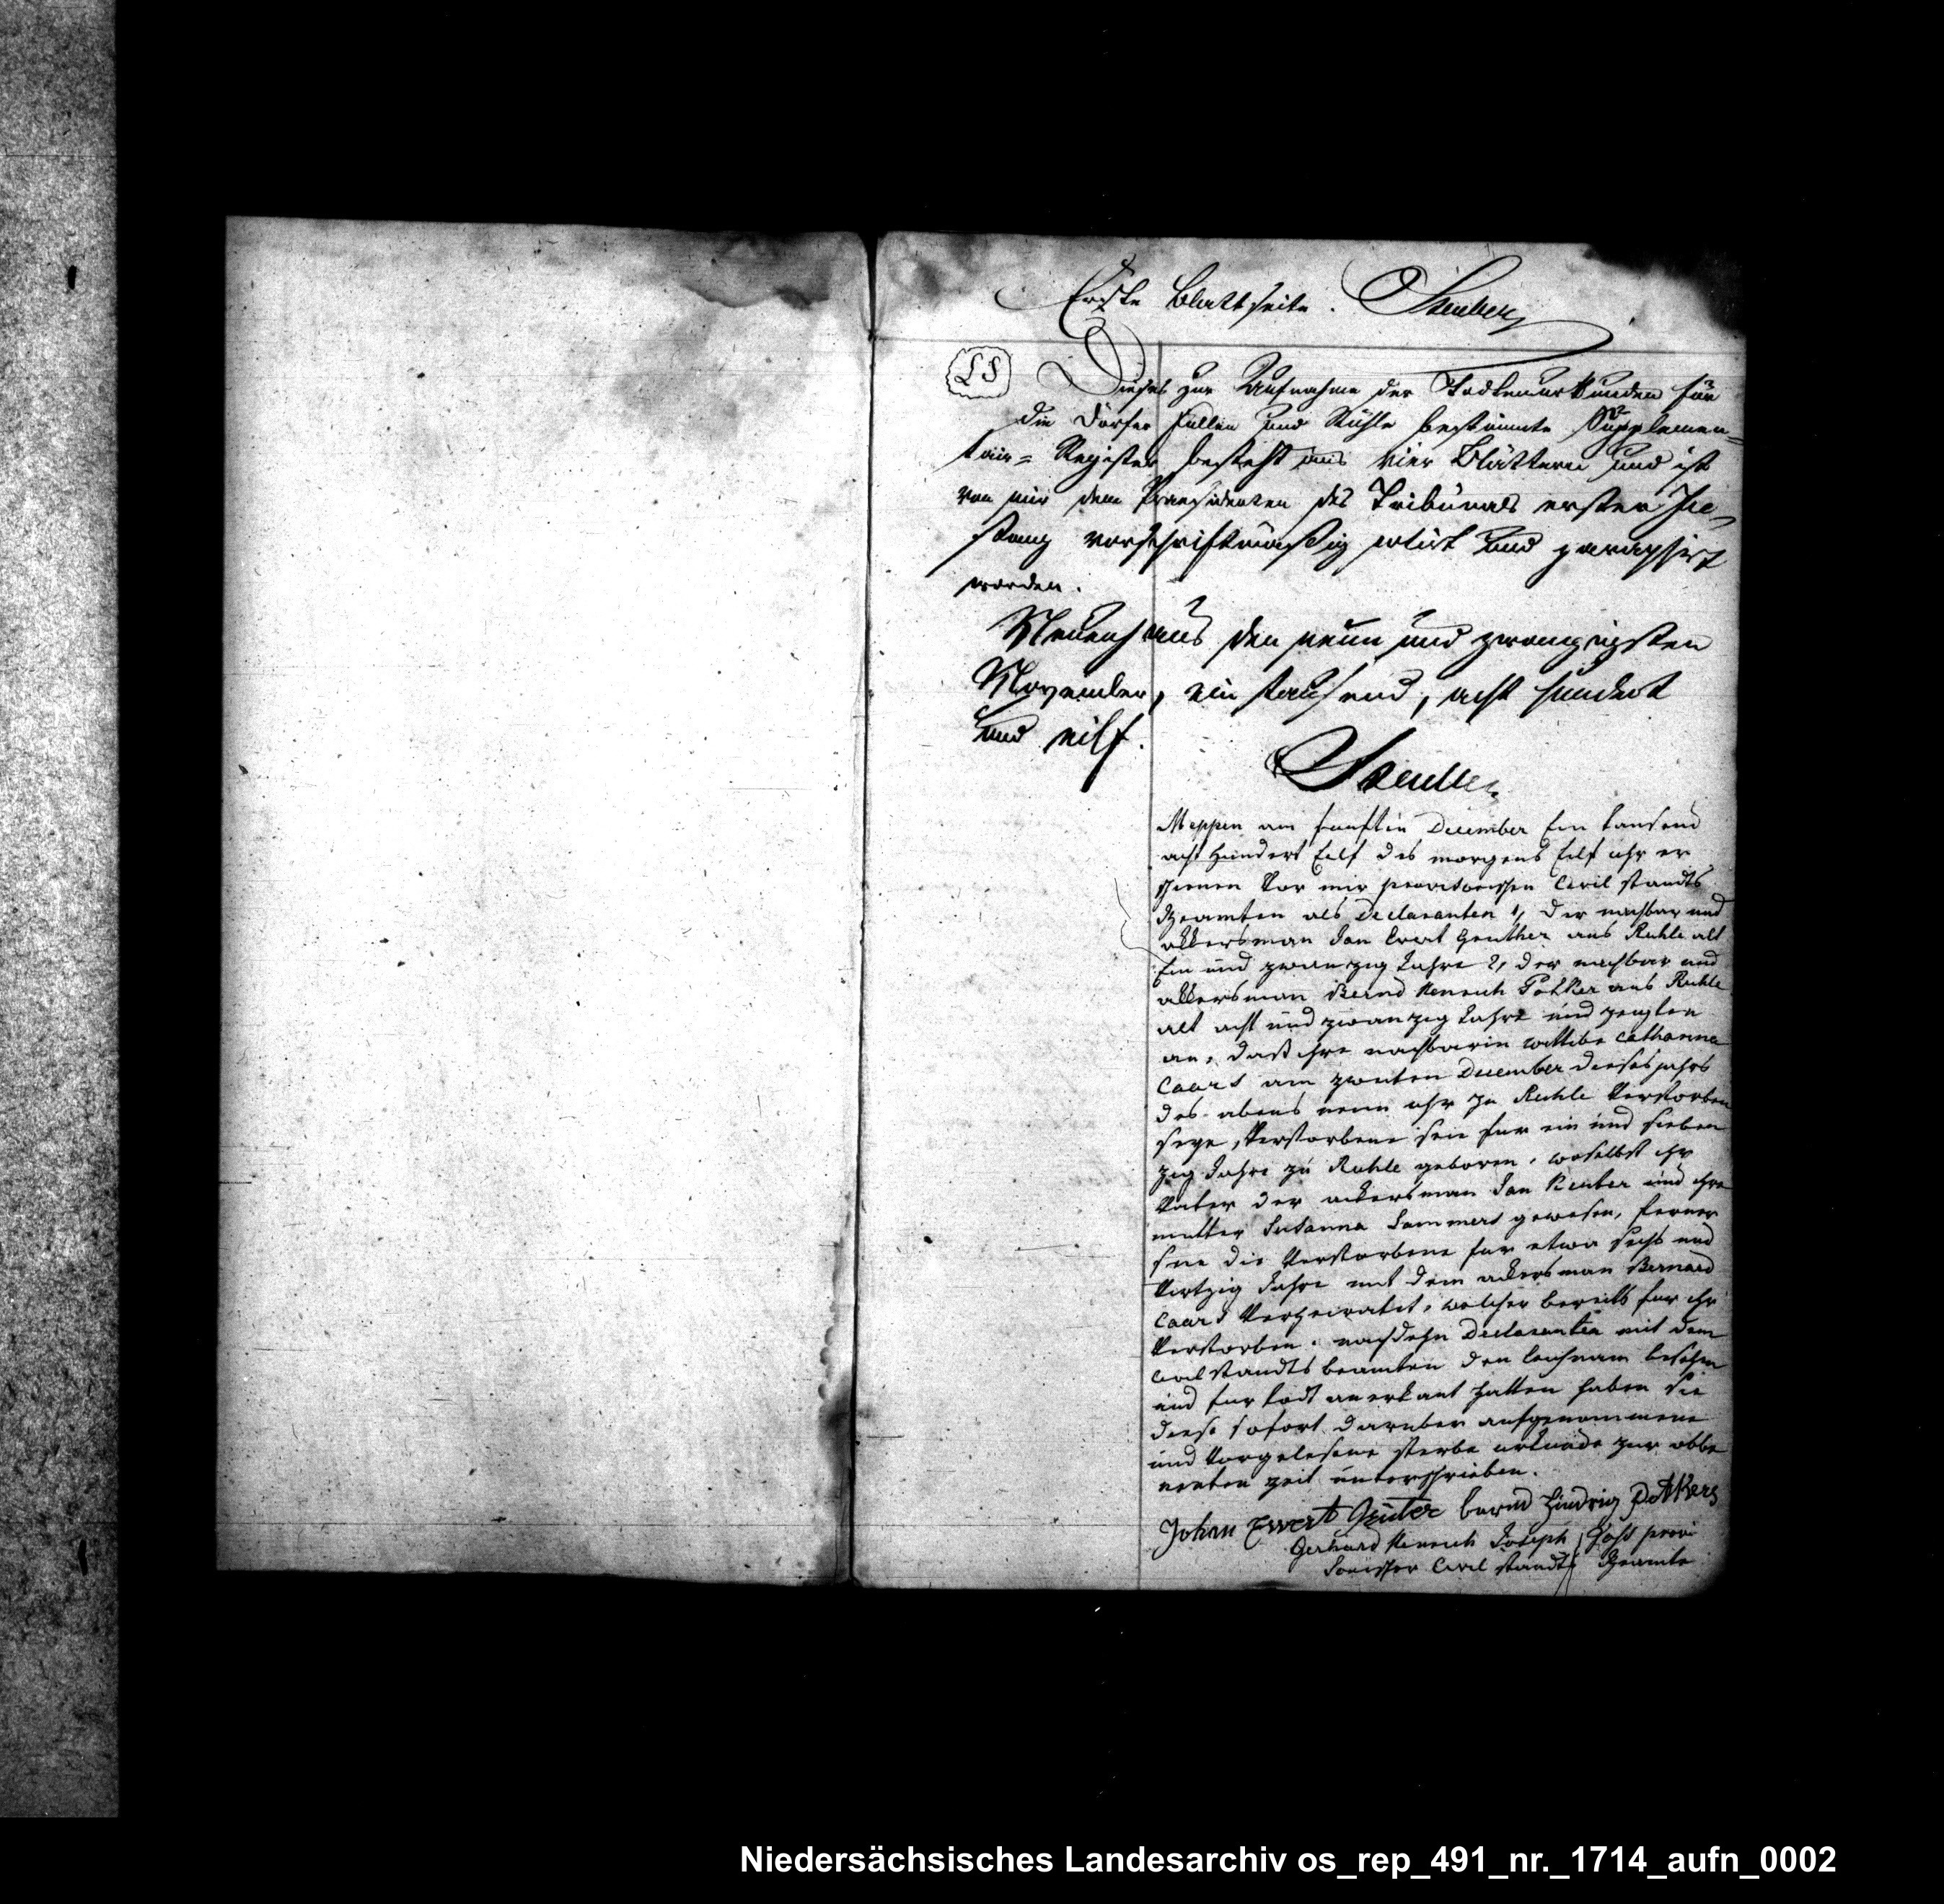 Erste Blattseite.
LS
Dieses zur Aufnahme der Todtenurkunden für
die Dörfer Fullen und Rühle bestimmte Supplemen=
tair= Register besteht aus vier Blättern und ist
von mir dem Praesidenten des Tribunals erster In=
stanz vorschriftmäßig cotirt und paraphirt
worden.
Neuenhaus den neun und zwanzigsten
November, ein tausend, acht hundert
und eilf.
Meppen am funften December Ein tausend
acht hundert Eilf des morgens Eilf uhr er
schienen vor mir provisorischen Civil standts
Beamten als Declaranten 1, der nachbar und
akkersman Jan Evert Geuther aus Ruhle alt
Ein und zwanzig Jahre 2, der nachbar und
akkersman Bernd Henrich Potker aus Ruhle
alt acht und zwanzig Jahre und zeugten
an, daß ihre nachbarin wittibe Catharina
Caars am zweiten December dieses jahrs
des abens neun uhr zu Ruhle verstorben
seye, verstorbene seie fur ein und sieben
zig Jahre zu Ruhle geboren, woselbst ihr
vater der ackersman Jan Reuter und ihre
mutter Susanna Sammers gewesen, ferner
seie die verstorbene fur etwa sechs und
viertzig Jahre mit dem ackersman Bernard
Caars verheiratet, welcher bereits fur ihr
verstorben. nachdehm Declaranten mit dem
Civilstandts beamten den leichnam besehen
und fur todt anerkant hatten haben sie
diese sofort daruber aufgenommene
und vorgelesene sterbe urkunde zur obbe
nenten zeit unterschrieben.
Johan Ewert Geuter bernd Hindrig Pottkers
Gerhard Henrich Joseph provi
sorischer Civil standts Beamte
Niedersächsisches Landesarchiv os_rep_491_nr._1714_aufn_0002